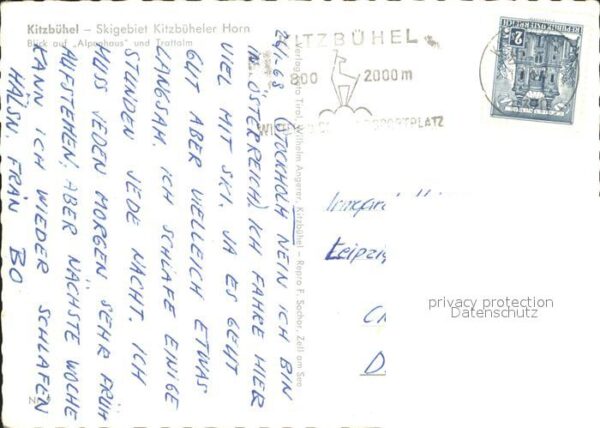 Kitzbühel – Skigebiet Kitzbüheler Horn
Blick auf „Alpenhaus" und Trattalm
24/1.68 (STOCKHOLM NEIN ICH BIN
IN ÖSTERREICH) ICH FAHRE HIER
VIEL MIT SKI. JA ES GEHT
GUT ABER VIELLEICH ETWAS
LANGSAM. ICH SCHLAFE EINIGE
STUNDEN JEDE NACHT. ICH
MUSS JEDEN MORGEN SEHR FRÜH
AUFSTEHEN, ABER NÄCHSTE WOCHE
KANN ICH WIEDER SCHLAFEN
HÄLSN. FRÅN BO.
Verlag Foto Tirol, Wilhelm Angerer, Kitzbühel – Repro F. Sochor, Zell am See
KITZBÜHEL
800 2000m
WINTER SPORTPLATZ
2
REPUBLIK ÖSTERREICH
Irmgard
Leipzig
privacy protection
Datenschutz